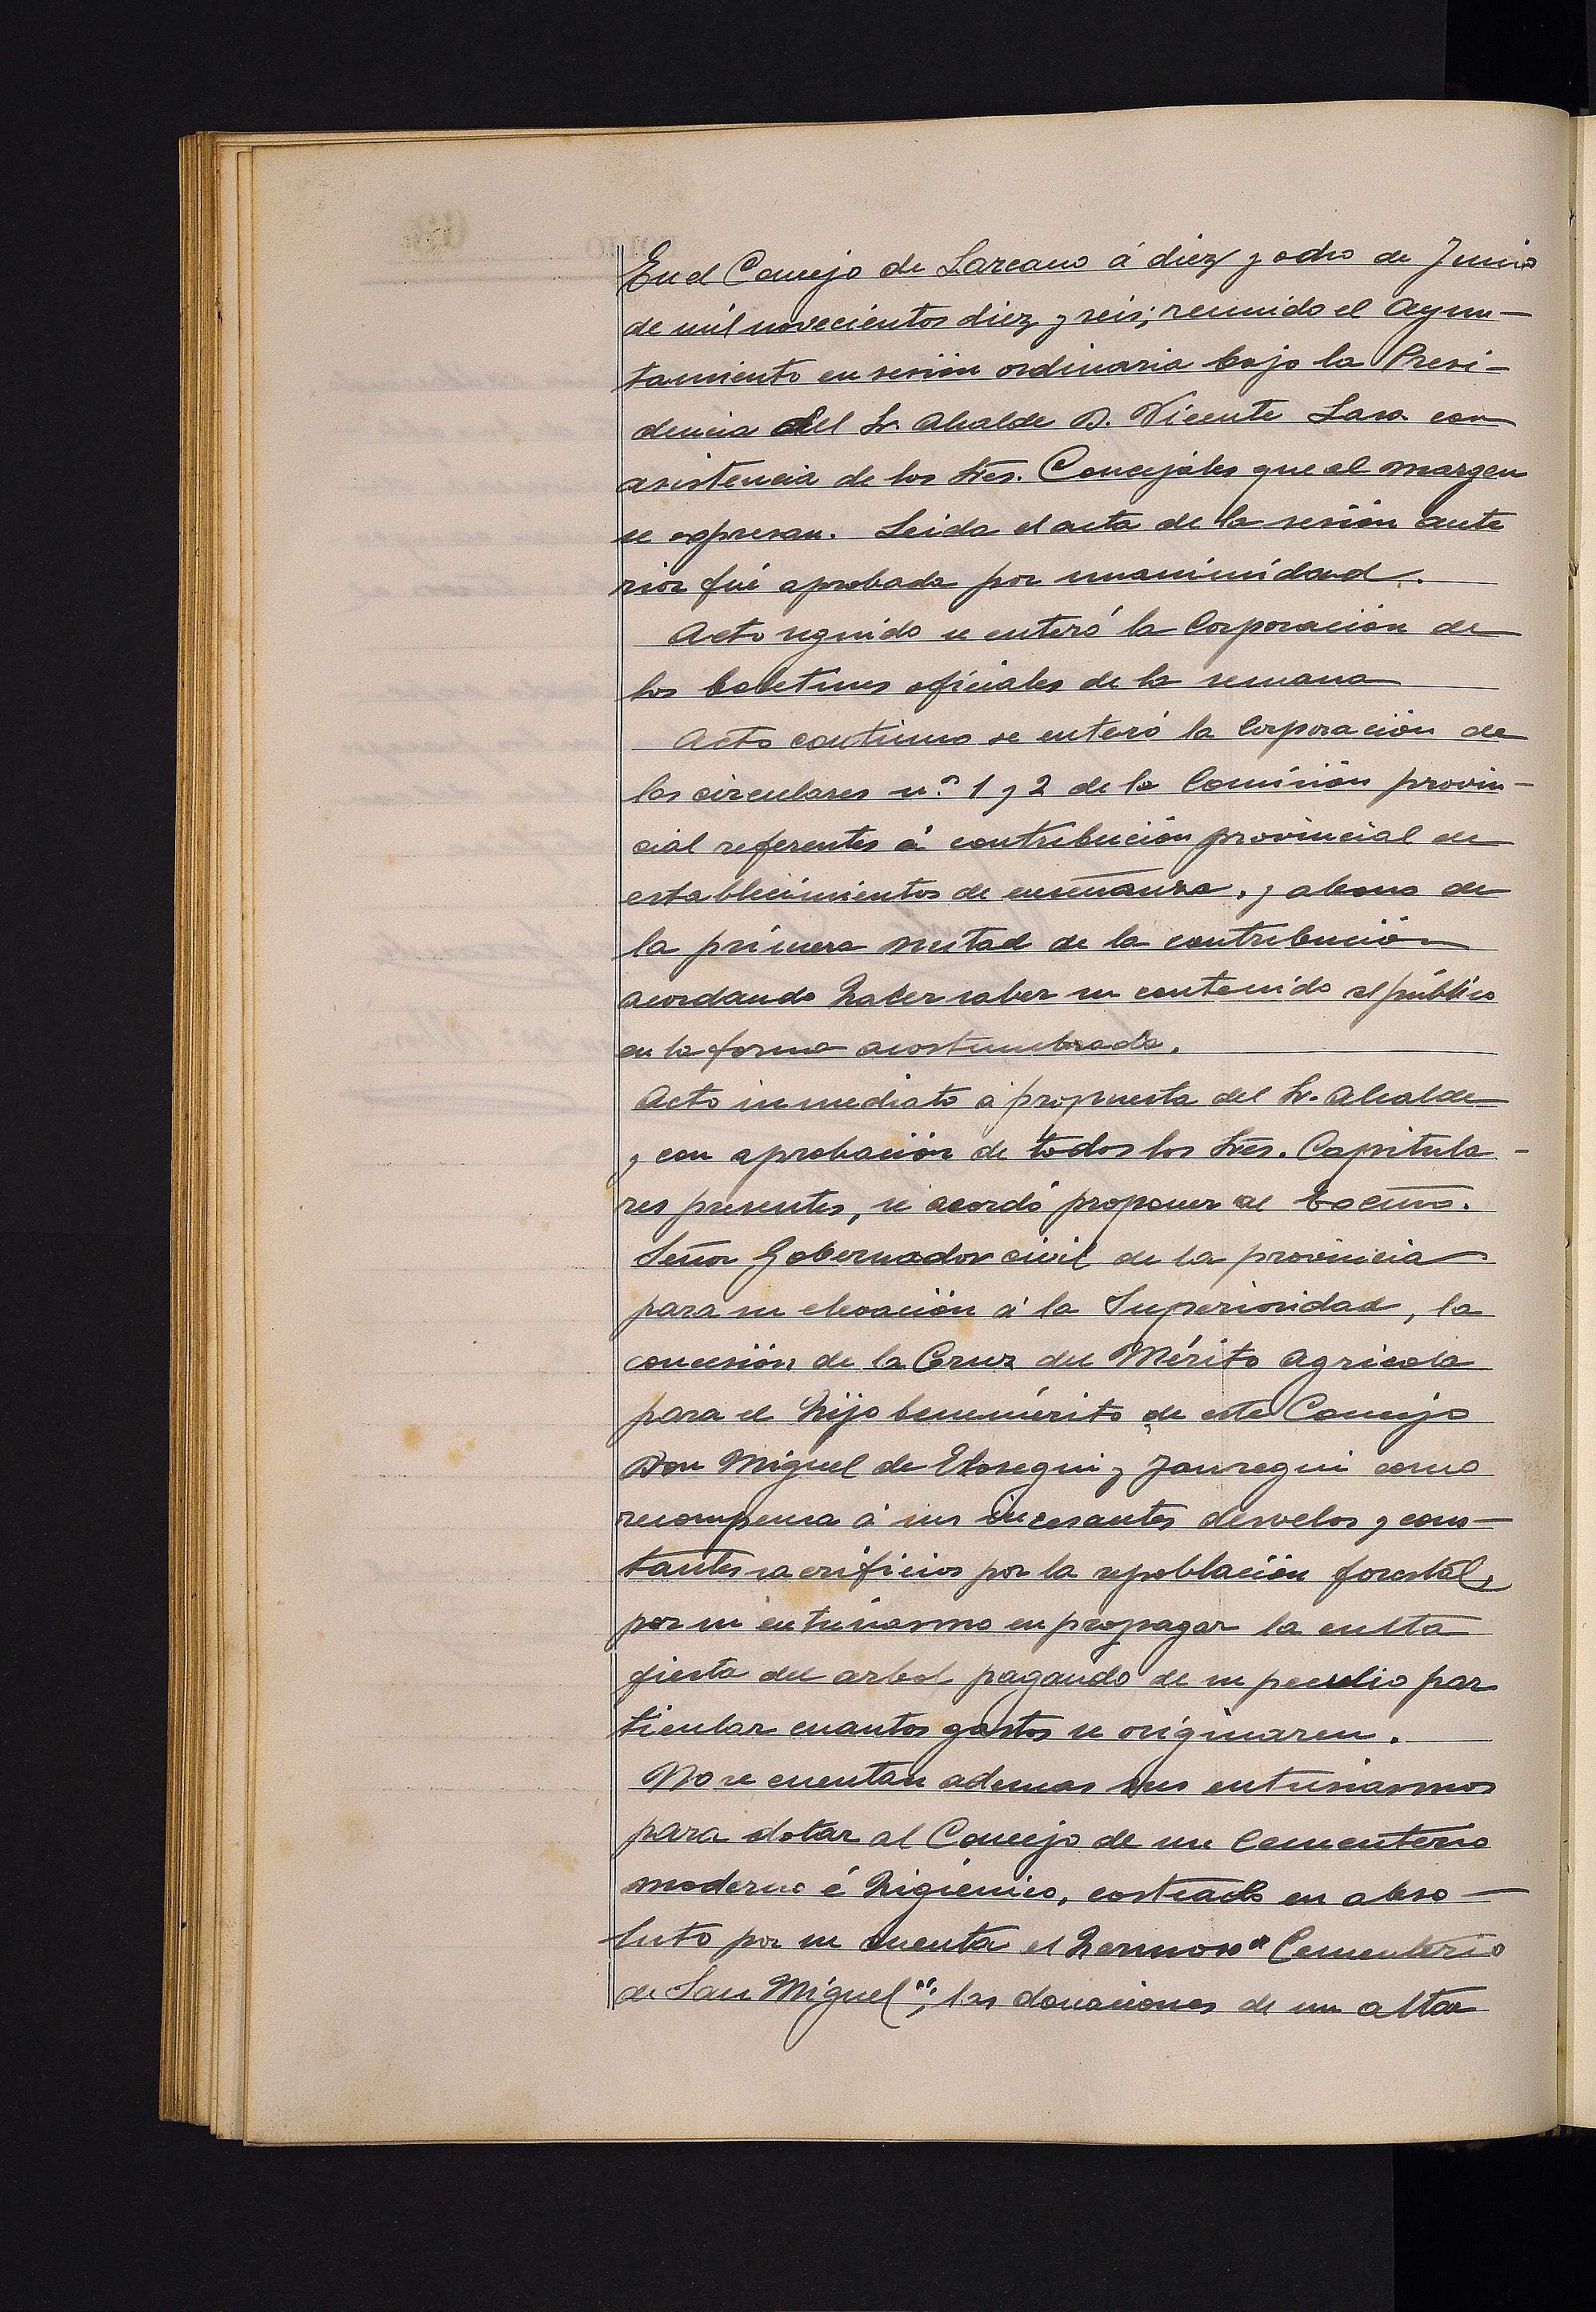 En el Concejo de Lazcano á diez y ocho de Junio
de mil novecientos diez y seis; reunido el Ayun-
tamiento en sesión ordinaria bajo la Presi-
dencia del Sr. Alcalde D. Vicente Lasa con
asistencia de los Sres. Concejales que al margen
se expresan. Leida el acta de la sesión ante
rior fué aprobada por unanimidad.
Acto seguido se enteró la Corporación de
los boletines oficiales de la semana
Acto continuo se enteró la Corporación de
las circulares n.º 1 y 2 de la Comisión provin-
cial referentes á contribución provincial de
establecimientos de enseñanza, y abono de
la primera mitad de la contribución
acordando hacer saber su contenido al público
en la forma acostumbrada.
Acto inmediato á propuesta del Sr. Alcalde
y con aprobación de todos los Sres. Capitula-
res presentes, se acordó proponer al Excmo.
Señor Gobernador civil de la provincia
para su elevación á la Superioridad, la
concesión de la Cruz del Mérito Agricola
para el hijo benemérito de este Concejo
Don Miguel de Elosegui y Jauregui como
recompensa á sus incesantes desvelos y cons-
tantes sacrificios por la repoblación forestal,
por su entusiasmo en propagar la culta
fiesta del arbol pagando de su peculio par
ticular cuantos gastos se originaren.
No se cuentan ademas sus entusiasmos
para dotar al Concejo de un Cementerio
moderno é higiénico, costeado en abso-
luto por su cuenta el hermoso "Cementerio
de San Miguel"; las donaciones de un altar